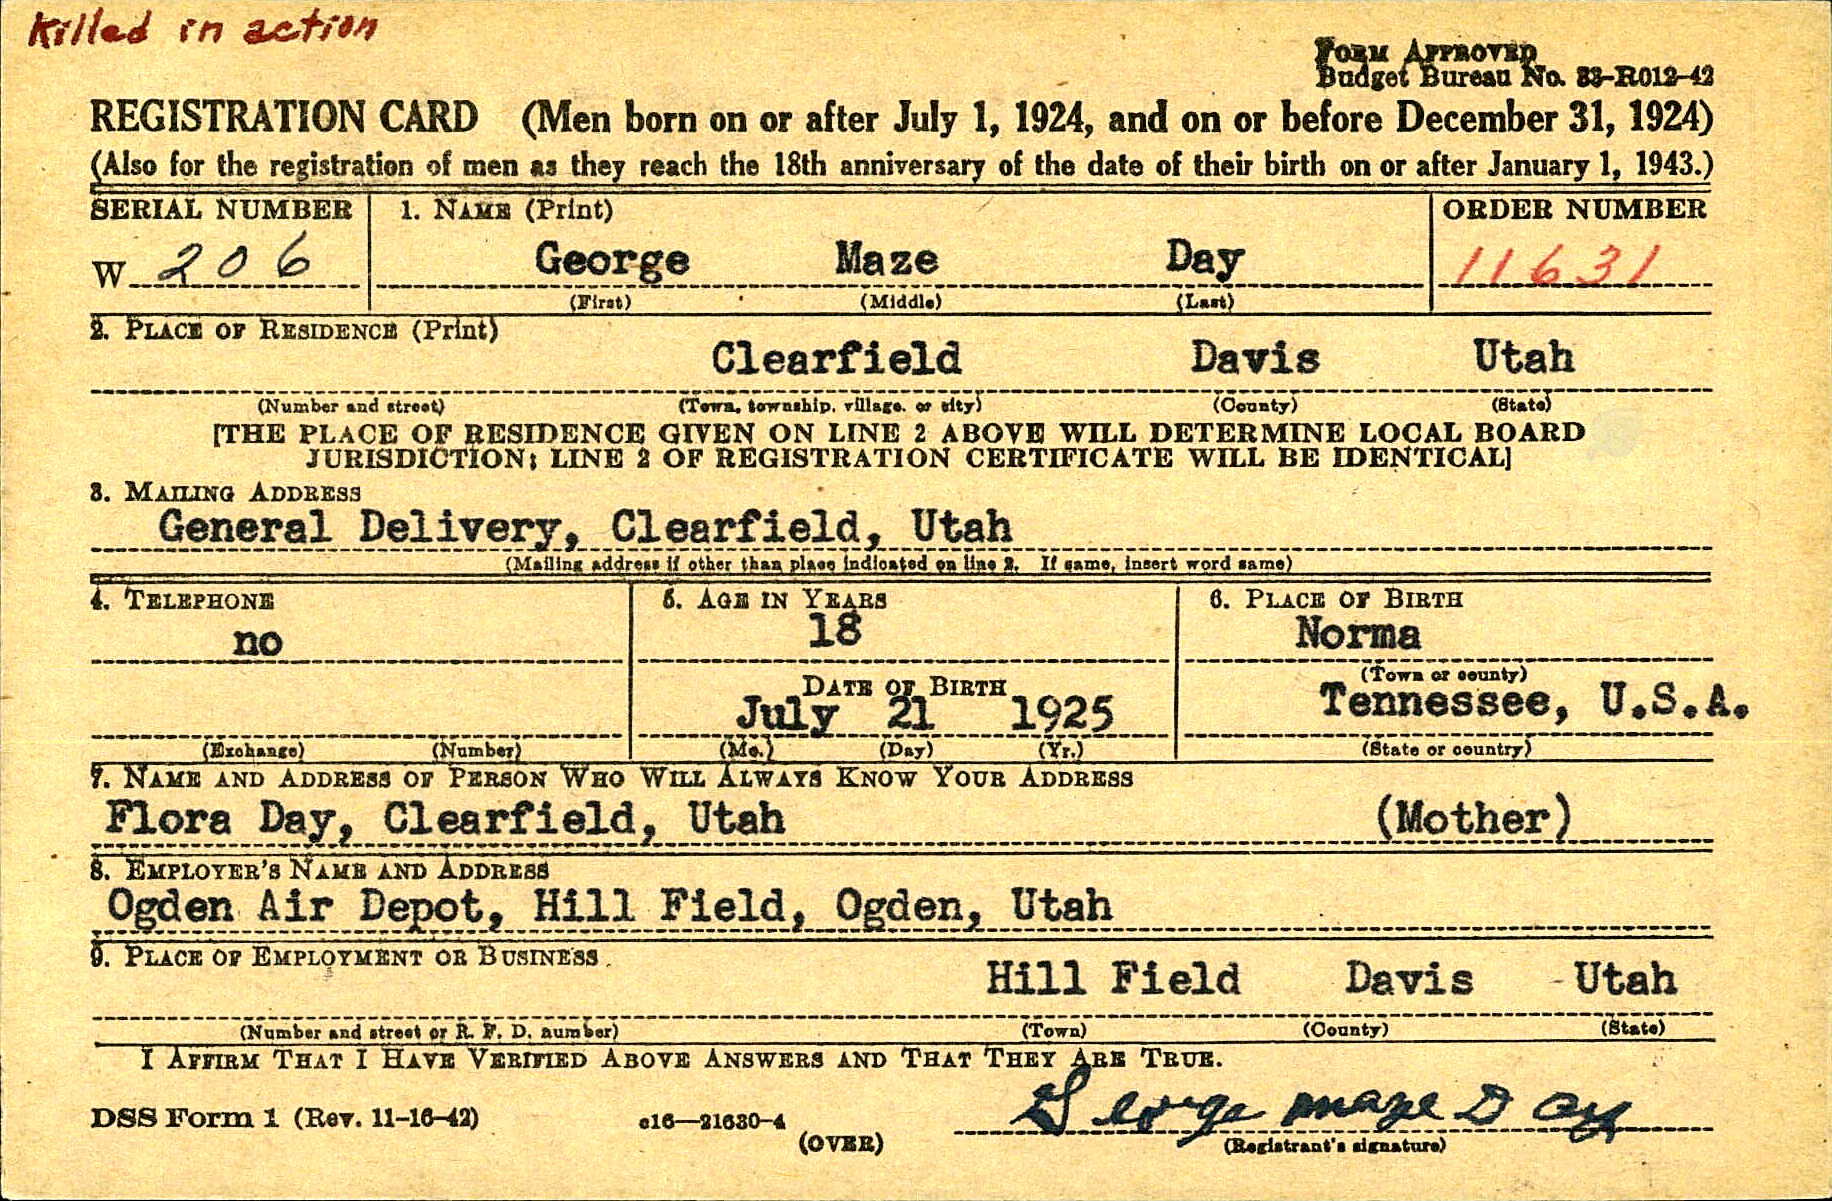 Killed in action
FORM APPROVED
Budget Bureau No. 33-R012-42
REGISTRATION CARD (Men born on or after July 1, 1924, and on or before December 31, 1924)
(Also for the registration of men as they reach the 18th anniversary of the date of their birth on or after January 1, 1943.)
SERIAL NUMBER 1. NAME (Print) ORDER NUMBER
W 206 George Maze Day 11631
(First) (Middle) (Last)
2. PLACE OF RESIDENCE (Print)
Clearfield Davis Utah
(Number and street) (Town, township, village, or city) (County) (State)
[THE PLACE OF RESIDENCE GIVEN ON LINE 2 ABOVE WILL DETERMINE LOCAL BOARD
JURISDICTION; LINE 2 OF REGISTRATION CERTIFICATE WILL BE IDENTICAL]
3. MAILING ADDRESS
General Delivery, Clearfield, Utah
(Mailing address if other than place indicated on line 2. If same, insert word same)
4. TELEPHONE 5. AGE IN YEARS 6. PLACE OF BIRTH
no 18 Norma
(Town or county)
DATE OF BIRTH
July 21 1925 Tennessee, U.S.A.
(Exchange) (Number) (Mo.) (Day) (Yr.) (State or country)
7. NAME AND ADDRESS OF PERSON WHO WILL ALWAYS KNOW YOUR ADDRESS
Flora Day, Clearfield, Utah (Mother)
8. EMPLOYER'S NAME AND ADDRESS
Ogden Air Depot, Hill Field, Ogden, Utah
9. PLACE OF EMPLOYMENT OR BUSINESS
Hill Field Davis Utah
(Number and street or R. F. D. number) (Town) (County) (State)
I AFFIRM THAT I HAVE VERIFIED ABOVE ANSWERS AND THAT THEY ARE TRUE.
DSS Form 1 (Rev. 11-16-42) c16—21630-4 George Maze Day
(OVER) (Registrant's signature)